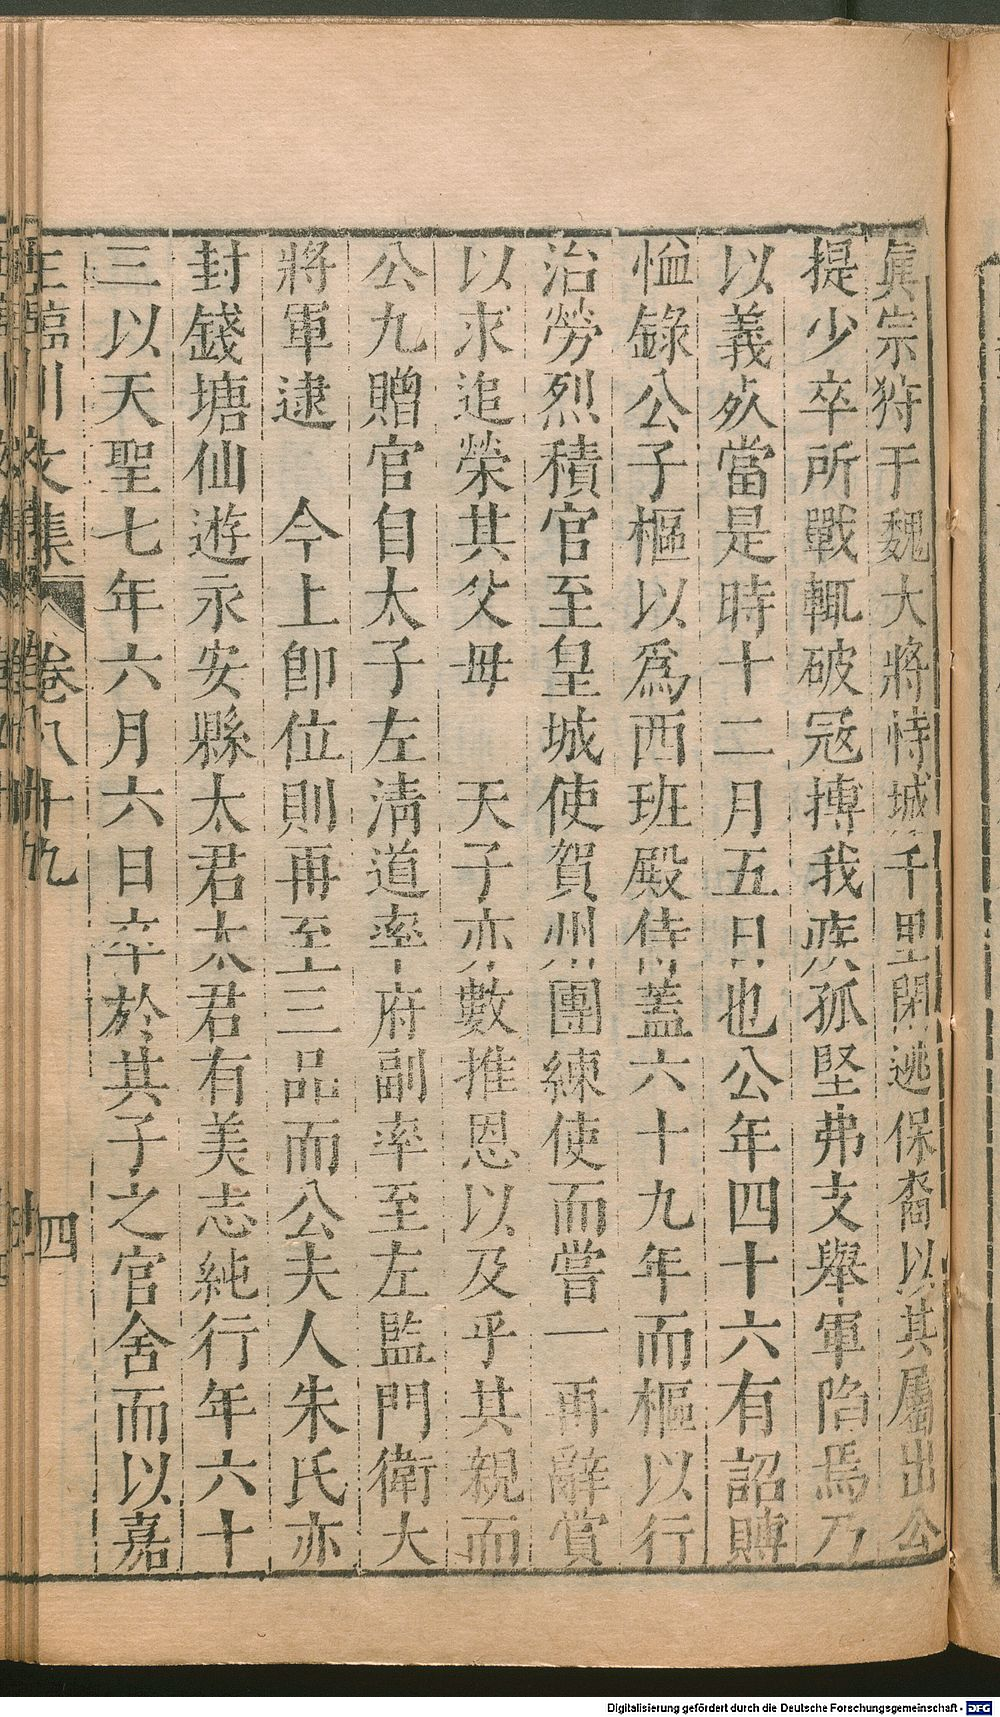 眞宗狩于魏大將恃城千里閉逃保裔以其屬出公
提少卒所戰輒破冦摶我疾孤堅弗支舉軍陷焉乃
以義㱙當是時十二月五日也公年四十六有詔賻
恤錄公子樞以爲西班殿侍蓋六十九年而樞以行
治勞烈積官至皇城使賀州團練使而嘗一再辭賞
以求追榮其父毋　天子亦數推恩以及乎其親而
公九贈官自太子左淸道率府副率至左監門衛大
將軍逮　今上卽位則再至三品而公夫人朱氏亦
封錢塘仙遊永安縣太君太君有美志純行年六十
三以天聖七年六月六日卒於其子之官舍而以嘉
王臨川文集　卷八十九　四
Digitalisierung gefördert durch die Deutsche Forschungsgemeinschaft - DFG